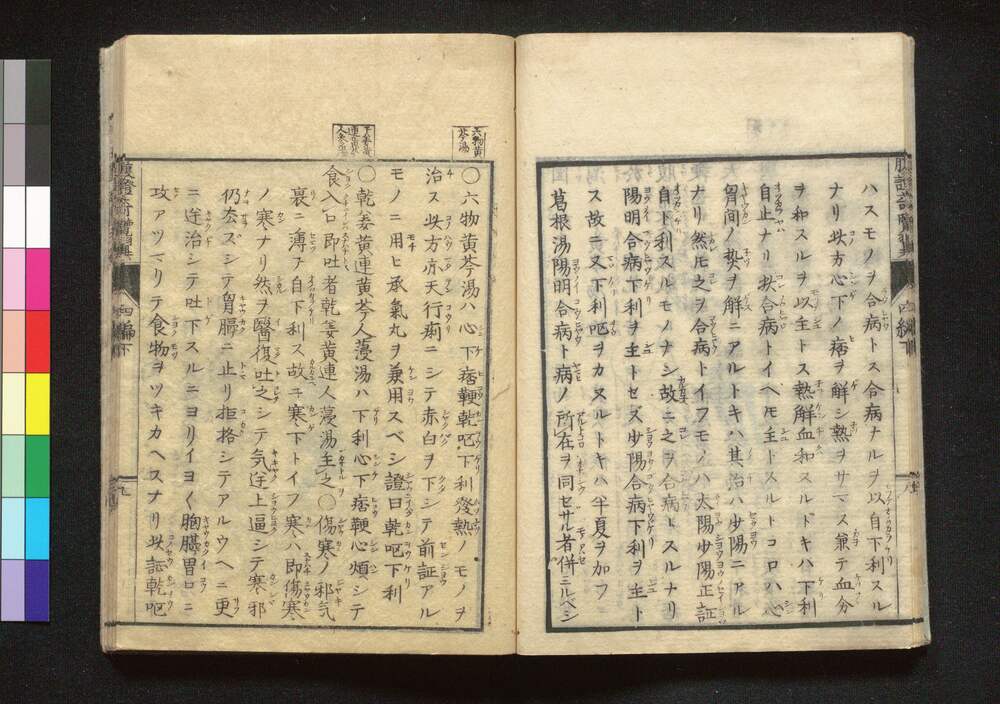 ハスモノヲ合病トス合病ナルヲ以自下利スル
ナリ此方心下ノ痞ヲ解シ熱ヲサマス兼テ血分
ヲ和スルヲ以主トス熱解血和スルドキハ下利
自止ナリ扶合病トイヘモ主トスルトコロハ心
胃間ノ熱ヲ解ニアルトキハ其治ハ少陽ニアル
ナリ然ルヲ合病トイフモノハ太陽少陽正証
自下利スルモノナシ故ニ之ヲ合病トスルナリ
陽明合病下利ヲ主トセズ少陽合病下利ヲ主ト
ス故ニ又下利呕ヲカヌルトキハ半夏ヲ加フ
葛根湯陽明合病ト病ノ所在ヲ同セサル者併ミルベシ
六物黄芩湯
○六物黄芩湯ハ心下痞鞕乾呕下利發熱ノモノヲ
治ス此方亦天行痢ニシテ赤白ヲ下シテ前証アル
モノニ用ヒ承氣丸ヲ兼用スベシ證曰乾呕下利
○乾姜黄連黄芩人薓湯ハ下利心下痞鞕心煩シテ
食入口即吐者乾姜黄連人薓湯主之○傷寒ノ邪气
裏ニ薄テ自下利ス故ニ寒下トイフ寒ハ即傷寒
ノ寒ナリ然ヲ醫復吐之シテ気逆上逼シテ寒邪
仍去ズシテ胃膈ニ止リ拒格シテアルウヘニ更
ニ逆治シテ吐下スルニヨリイヨく胸膈胃口ニ
攻アツマリテ食物ヲツキカヘスナリ此証乾呕
腹證奇覽翼
四編下
九